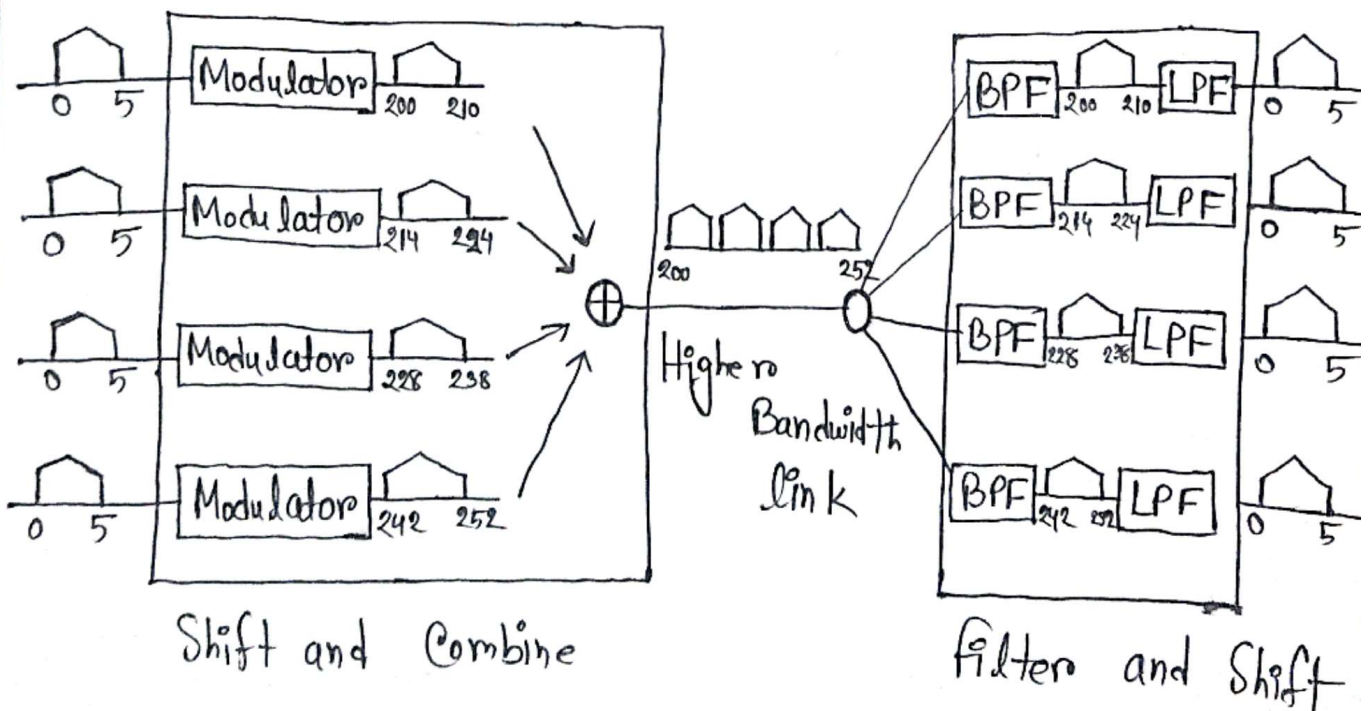 0 5 Modulator 200 210
0 5 Modulator 214 224
0 5 Modulator 228 238
0 5 Modulator 242 252
Shift and Combine
200 252
Higher
Bandwidth
link
BPF 200 210 LPF 0 5
BPF 214 224 LPF 0 5
BPF 228 238 LPF 0 5
BPF 242 252 LPF 0 5
Filter and Shift